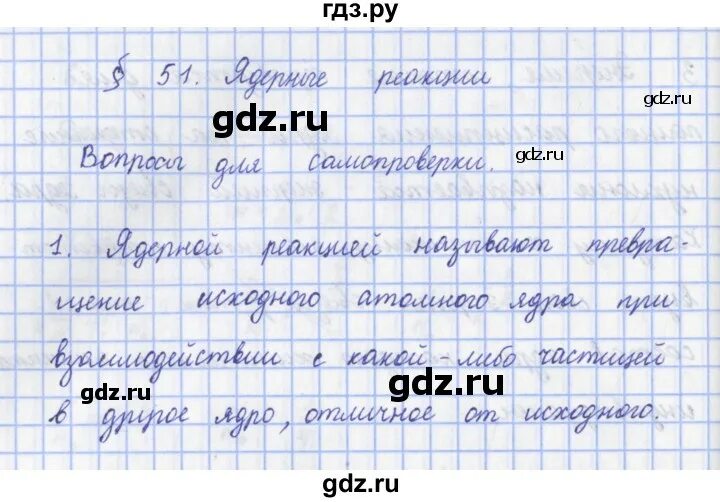 гдз.ру
§ 51. Ядерные реакции
gdz.ru
gdz.ru
Вопросы для самопроверки.
gdz.ru
1. Ядерной реакцией называют превра-
щение исходного атомного ядра при
взаимодействии с какой-либо частицей
gdz.ru
gdz.ru
в другое ядро, отличное от исходного.
gdz.ru